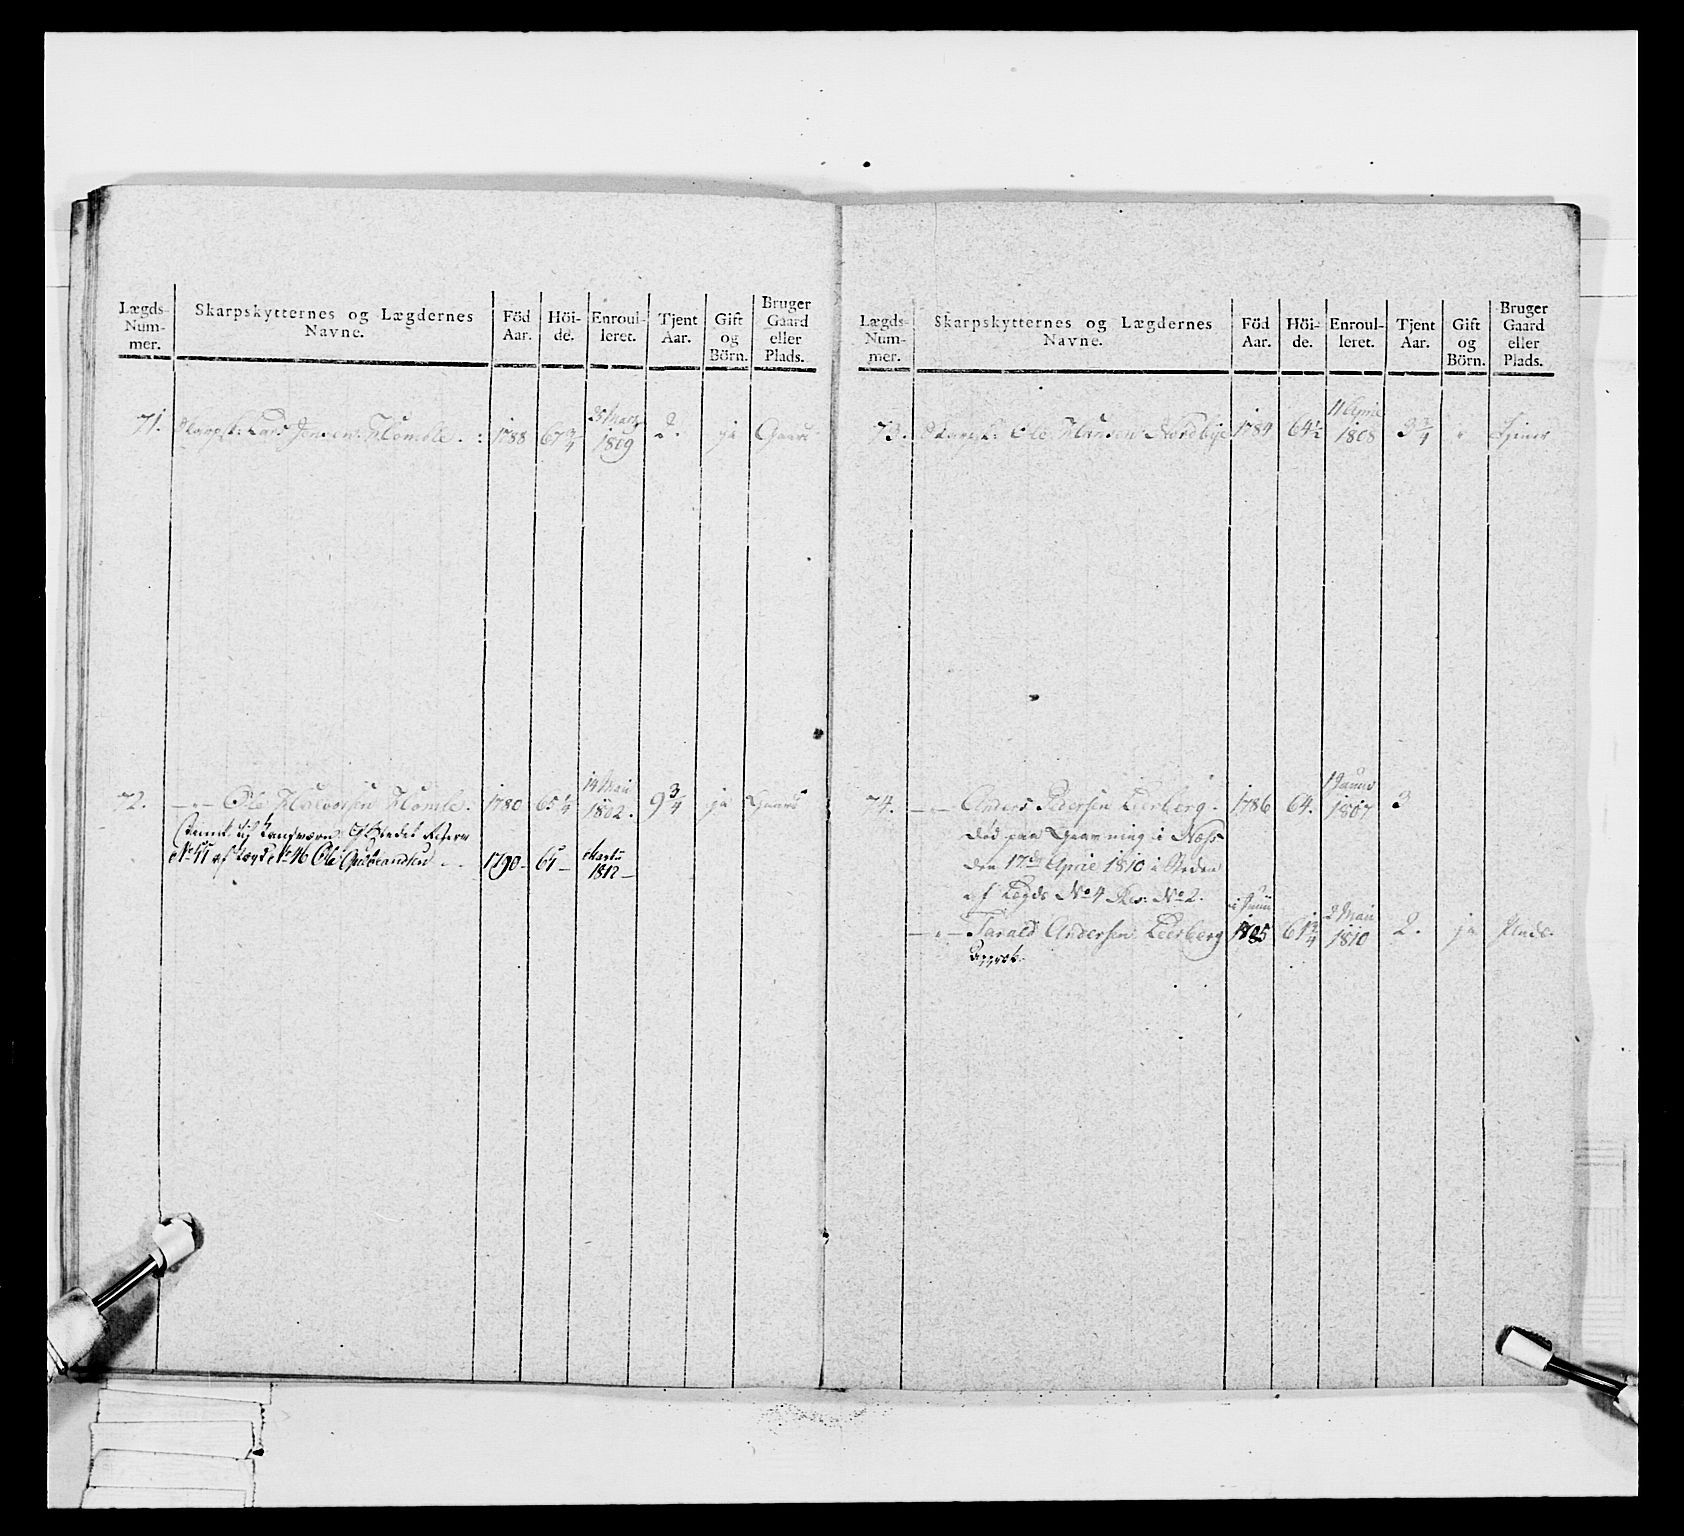 Lægds-
Num-
mer.
Skarpskytternes og Lægdernes
Navne.
Föd
Aar.
Höi-
de.
Enroul-
leret.
Tjent
Aar.
Gift
og
Börn.
Bruger
Gaard
eller
Plads.
71. Skarpsk: Lars Jensen Homble. 1788 67 3/4 25 Marz 1809 2. ja Gaard
72. — " — Ole Halvorsen Homble. 1780 65 1/4 14 Mai 1802. 9 3/4 ja Gaard
No af Lægd No 46 Ole Gudbrandsen 1790 – Martii 1812 –
Lægds-
Num-
mer.
Skarpskytternes og Lægdernes
Navne.
Föd
Aar.
Höi-
de.
Enroul-
leret.
Tjent
Aar.
Gift
og
Börn.
Bruger
Gaard
eller
Plads.
73. Skarpsk: Ole Hansen Nordbye 1784 64 1/2 11 April 1808 3 3/4 " tjener
74. — " — Anders Pedersen Leerberg. 1786 64. 1807 3
död paa i Næss
den 17de April 1810 i Steden
af Lægds No 4 Res: No 2.
— " — Tarald Andersen Leerberg 1785 61 3/4 2 Mai 1810 2. ja Plads.